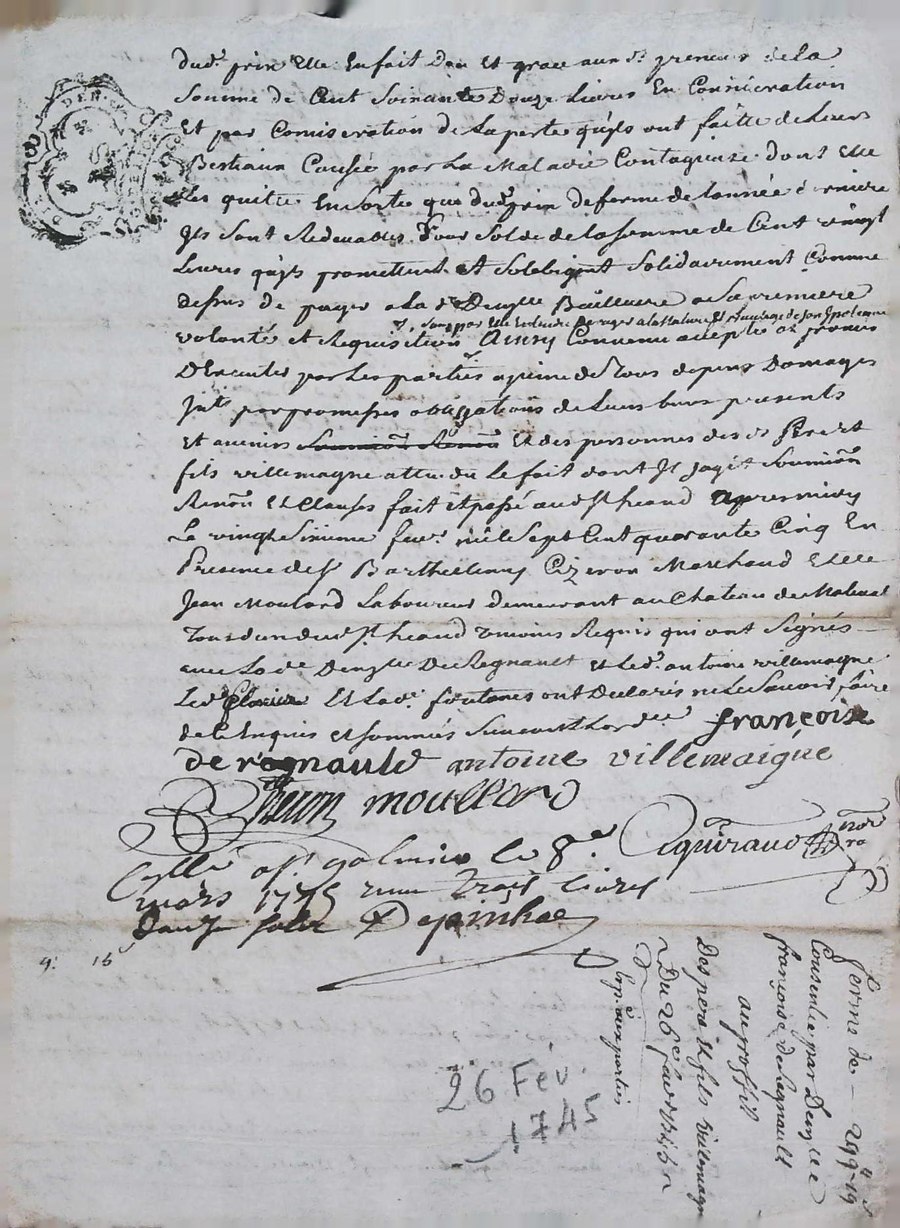 dud. prix Elle En fait Don Et grace aux ds. preneurs de la
Somme de Cent Soixante Douze Livres En Consideration
Et par Comiseration de La perte qu'ils ont faitte de Leurs
Bestiaux Causée par La Maladie Contagieuse dont Elle
Les quitte En sorte que dud. prix de ferme de Lannée derniere
Ils sont Redevables pour Solde de la somme de Cent vingt
Livres qu'ils promettent Et Sobligent Solidairement Comme
dessus de payer a la de. Dem.lle Bailleure a Sa premiere
volonté et Requisition Ainsy Convenu accepté
par Les parties a peine de Tous depens Domages
Jnts. par promesses obligations de Leurs biens presents
Et avenirs Et des personnes des ds. Pere et
fils villemagne attendu Le fait dont Il Sagit Soumiõn
Renõn Et Clauses fait Et passé aud. St. heand apres midy
Le vingt Sixieme fevr. mil Sept Cent quarante Cinq En
Presence de Sr. Barthellemy Cizeron Marchand Et de
Jean Moulard Laboureur demeurant au Chateau de Malleval
Tous deux dud. St. heand temoins Requis qui ont Signés
avec La de. Dem.lle De Regnault et Led. antoine villemagne
Et Lad. fontanes ont Declarés ne Le Savoir faire
de ce Enquis et sommés Suivant Lordce.
françoise
de regnauld antoine villemaigne
Cizeron moullard
Aguiraud nore. ro.
Cellé a St. galmier le 8.e
mars 1745 reçu trois livres
Douze sols Depinhac
ferme de 299 - 19
Consentie par Demlle
françoise de Regnault
au proffit
Des pere Et fils villemagne
Du 26e. fevr.
Exp. aux parties
26 Fév.
1745